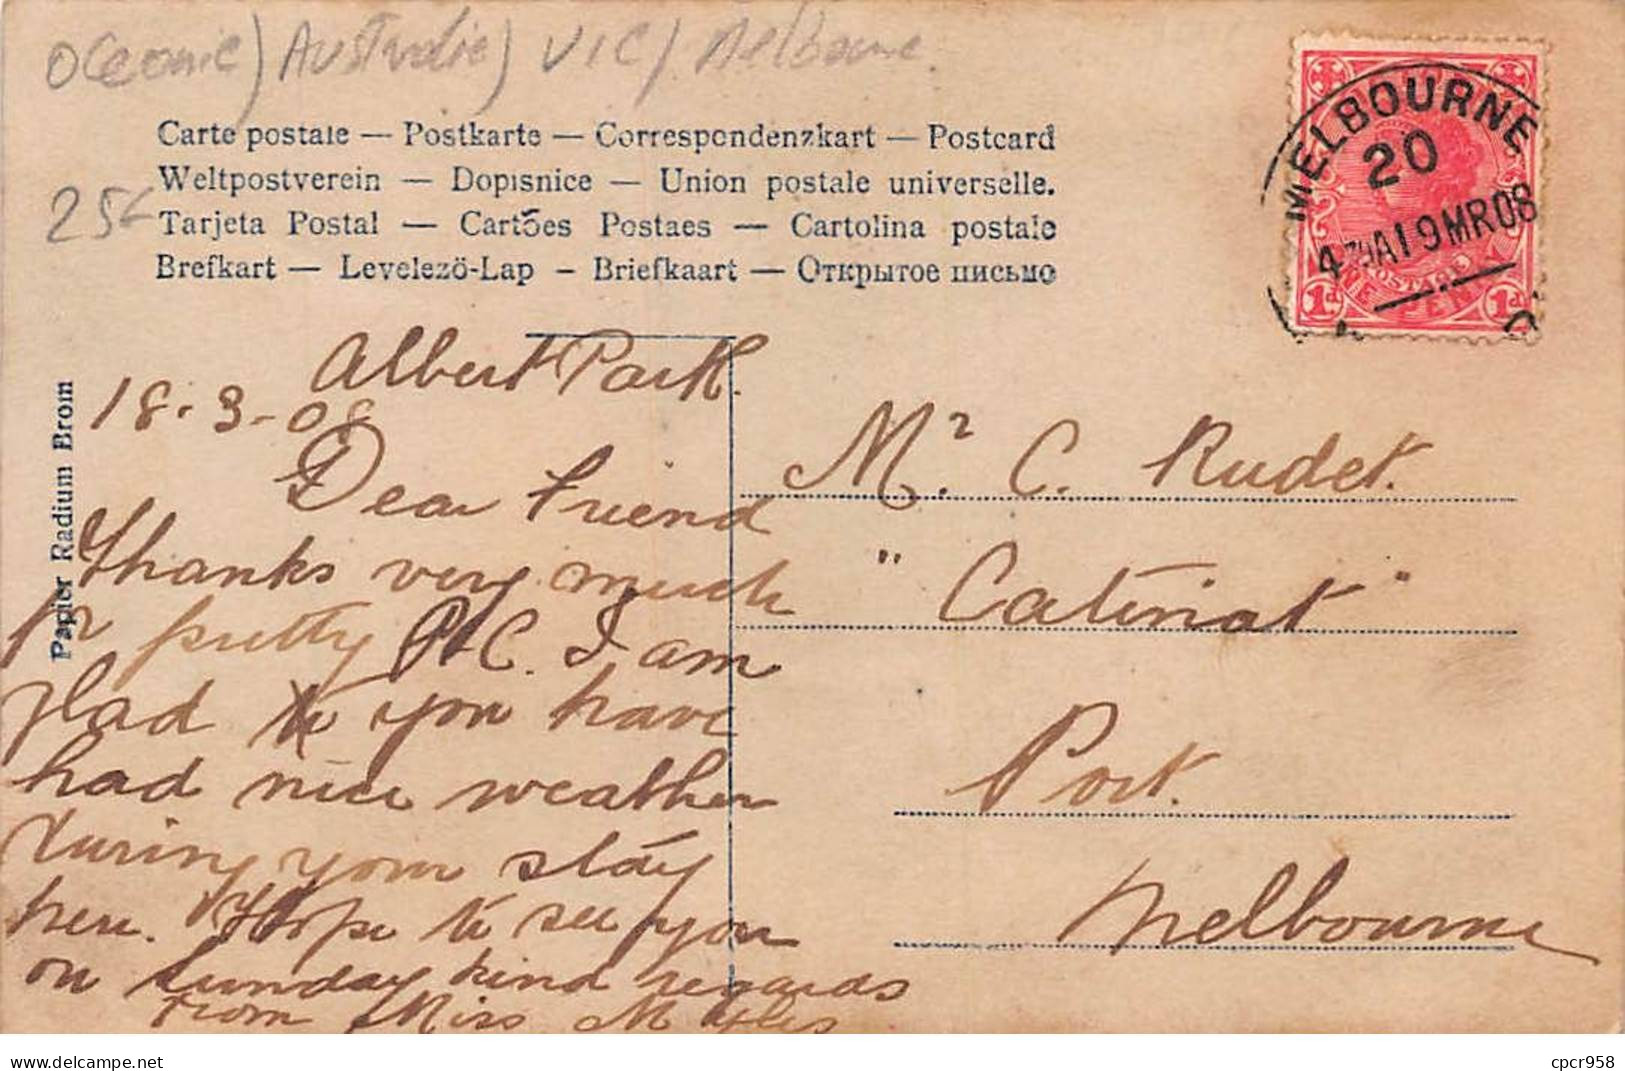 Oceanie) Australie) VIC) Melbourne
Carte postale — Postkarte — Correspondenzkart — Postcard
Weltpostverein — Dopisnice — Union postale universelle.
25
Tarjeta Postal — Cartões Postaes — Cartolina postale
Brefkart — Levelezö-Lap – Briefkaart — Открытое письмо
MELBOURNE
20
4 A19MR08
POSTAGE
ONE PENNY
1d 1d
Papier Radium Brom
Albert Park.
18.3-08
Dear Friend
Thanks very much
for pretty P.C. I am
glad to you have
had nice weather
during your stay
here. Hope to see you
on Sunday kind regards
from Miss M
Mr. C. Rudet.
"Catinat"
Port.
Melbourne
www.delcampe.net
cpcr958